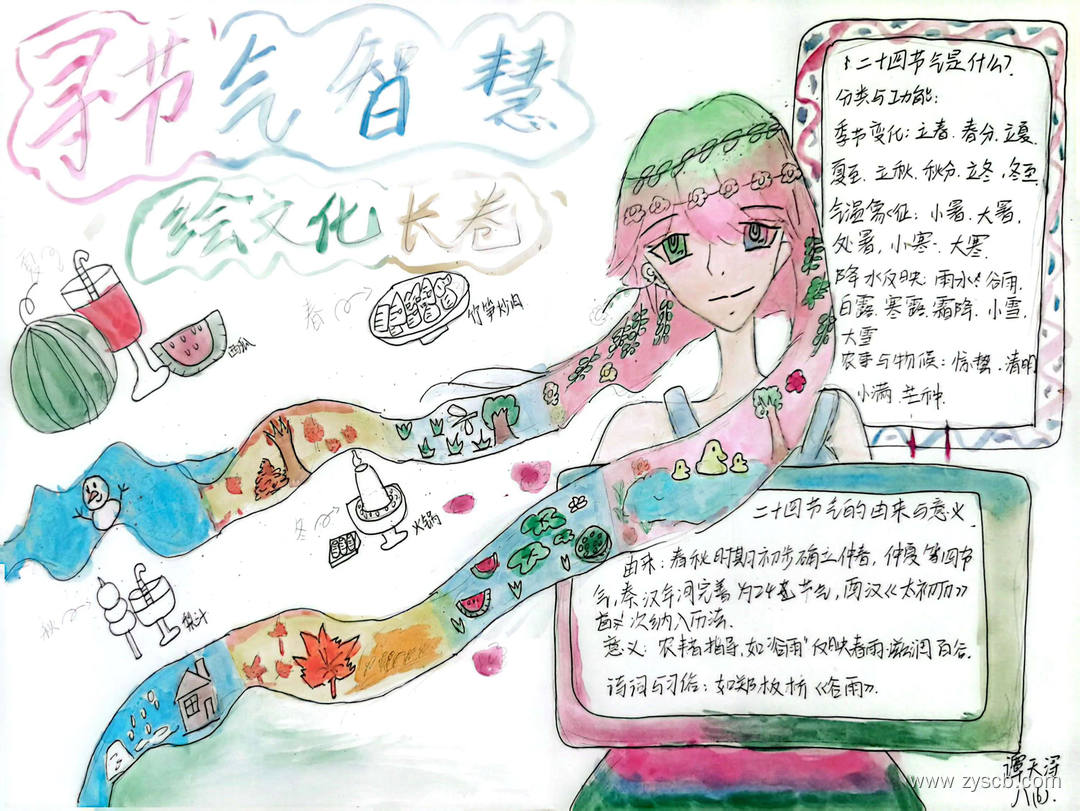 寻节气智慧
绘文化长卷
夏
西瓜
春
竹笋炒肉
冬
火锅
秋
梨汁
二十四节气是什么?
分类与功能:
季节变化:立春、春分、立夏、
夏至、立秋、秋分、立冬、冬至
气温特征:小暑、大暑、
处暑、小寒、大寒
降水反映:雨水、谷雨、
白露、寒露、霜降、小雪、
大雪
农事与物候:惊蛰、清明
小满、芒种.
二十四节气的由来与意义
由来:春秋时期初步确立仲春,仲夏等四节
气,秦汉年间完善为24节气,西汉《太初历》
首次纳入历法.
意义:农耕指导,如"谷雨"反映春雨滋润百谷.
诗词与习俗:如郑板桥《谷雨》.
谭天泽
八(6).
www.zyscb.com